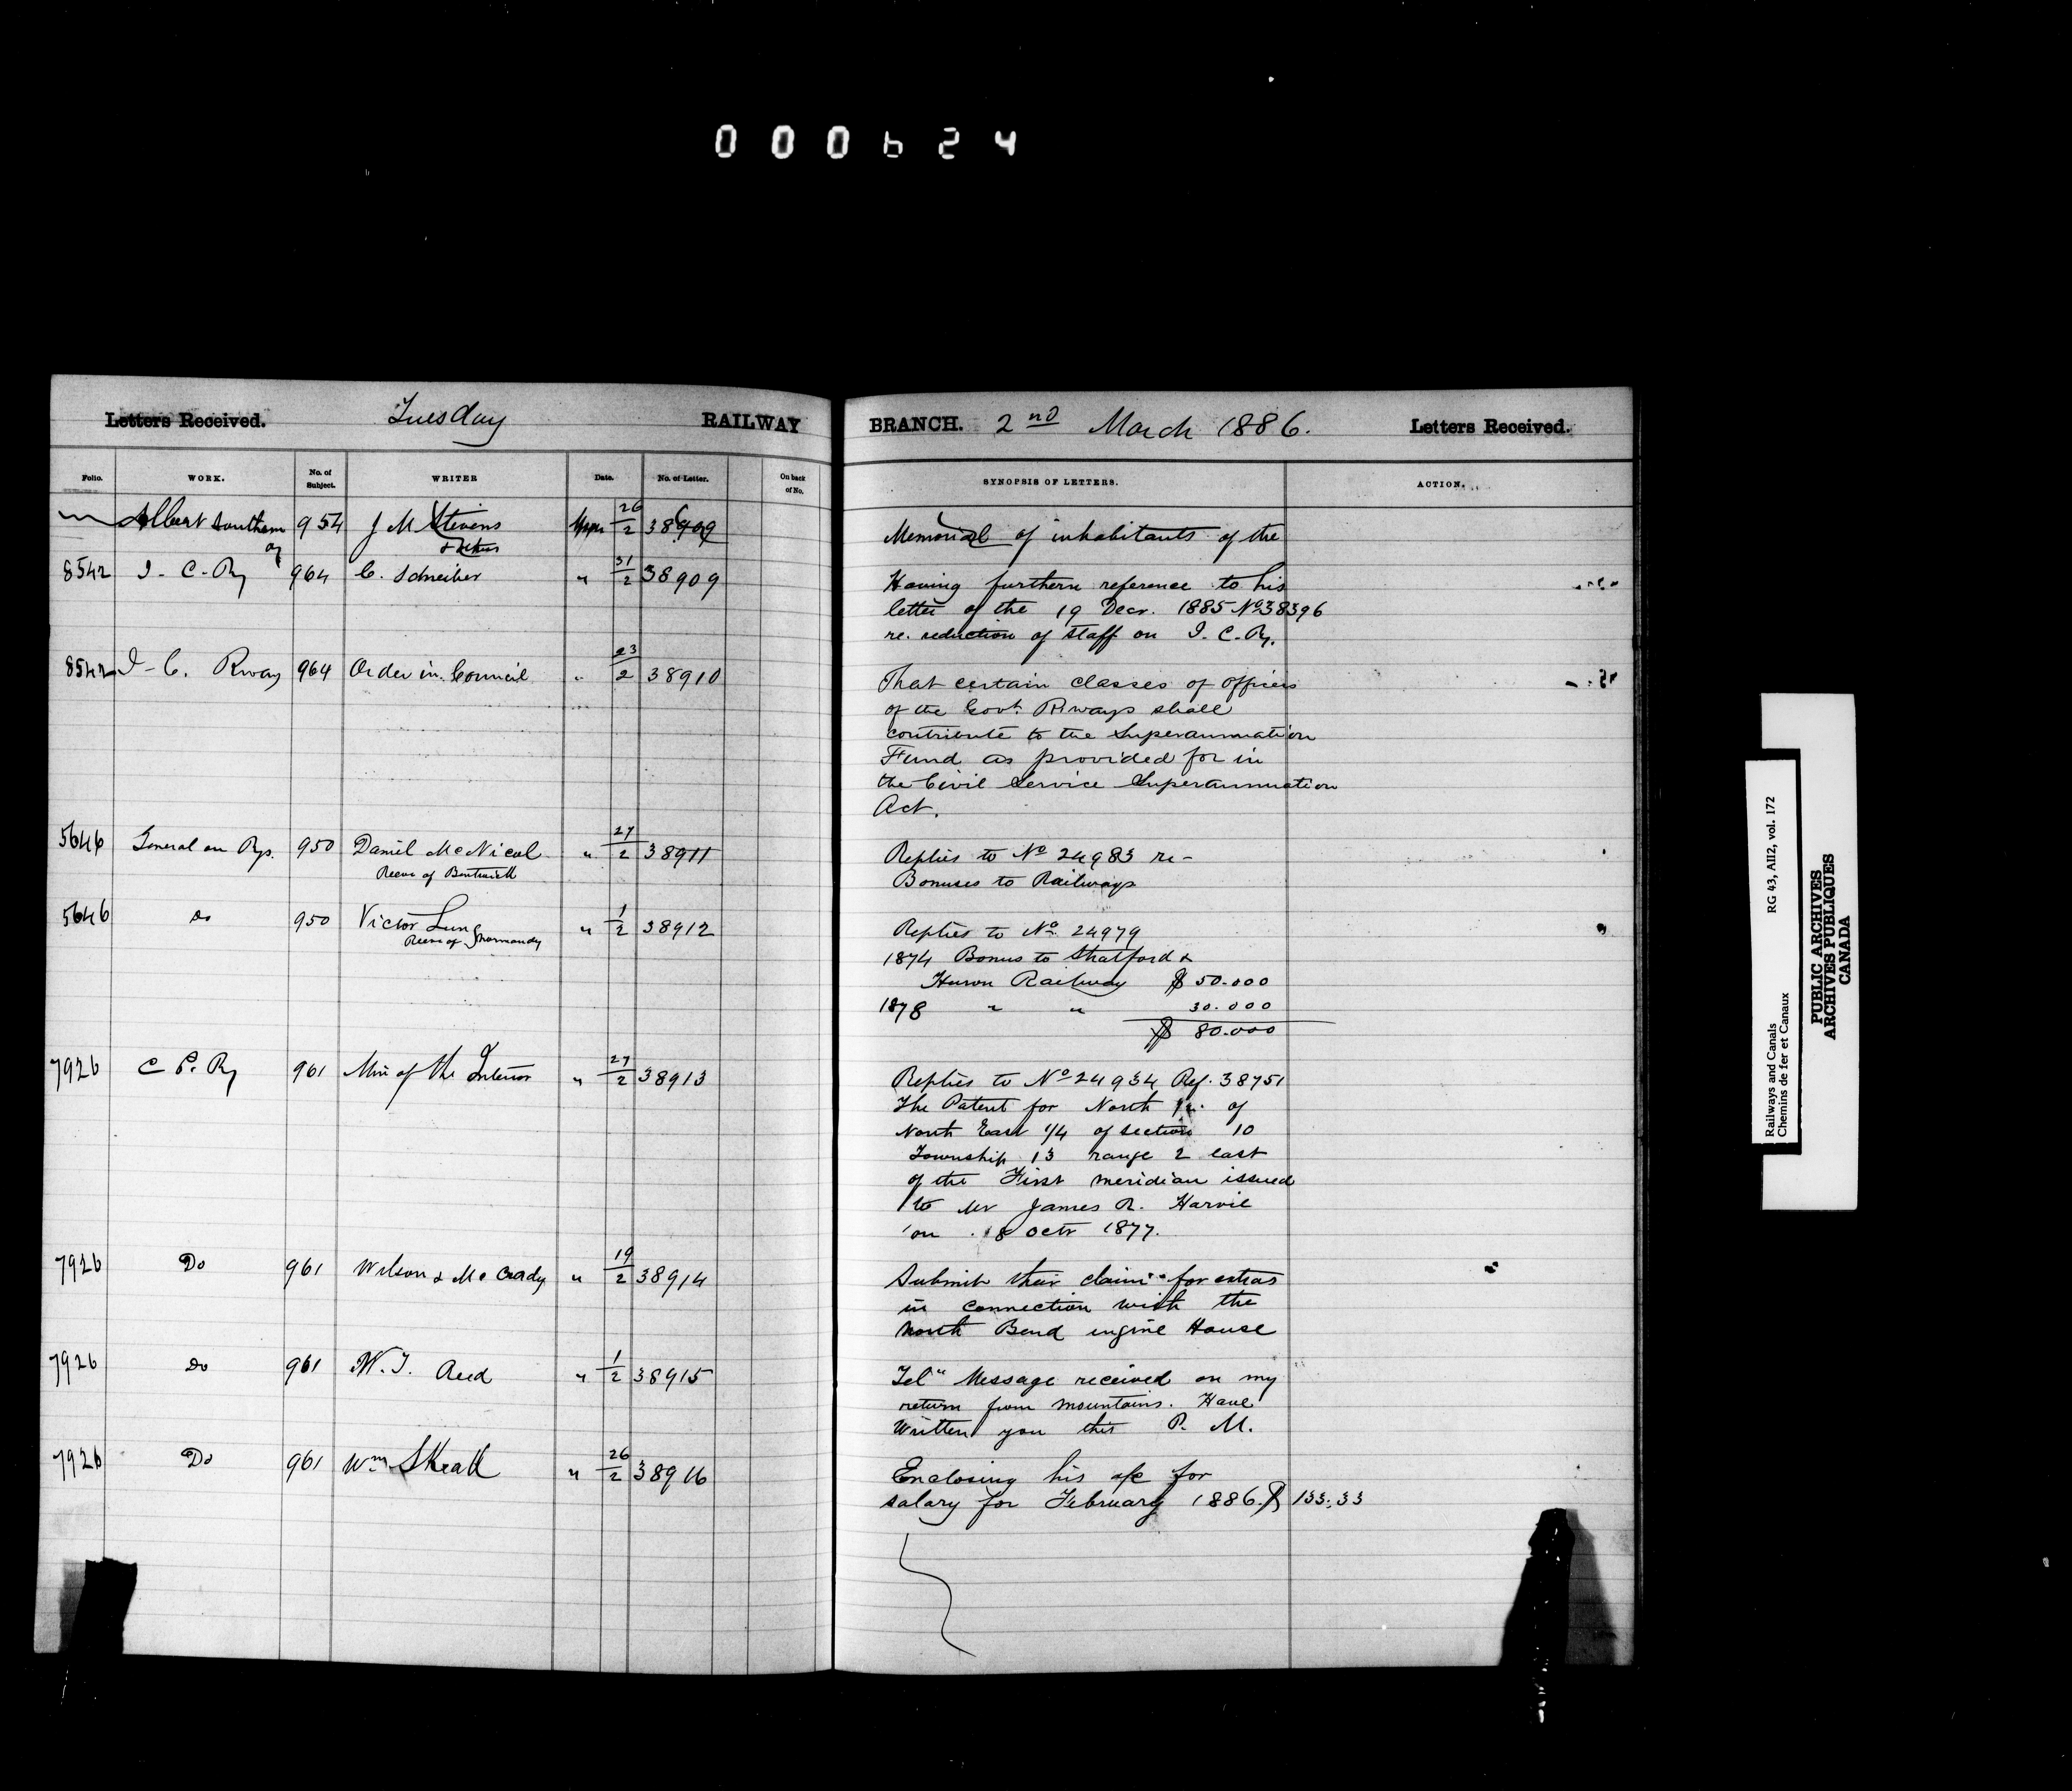 000624
Letters Received. Tuesday RAILWAY BRANCH. 2nd March 1886. Letters Received.
Folio. WORK. No. of Subject. WRITER Date. No. of Letter. On back of No. SYNOPSIS OF LETTERS. ACTION.
Albert Southern Ry 954 J M Stevens & others 26/2 Memorial of inhabitants of the
8542 I. C. Ry 964 C. Schreiber " 31/2 38909 Having further reference to his
letter of the 19 Decr. 1885 No 38396
re. reduction of staff on I. C. Ry.
8542 I. C. Rway 964 Order in Council " 23/2 38910 That certain classes of officers
of the Govt. Rways shall
contribute to the Superannuation
Fund as provided for in
the Civil Service Superannuation
Act.
5646 General on Rys. 950 Daniel McNicol " 27/2 38911 Replies to No 24983 re-
Reeve of Bentinck Bonuses to Railways
5646 do 950 Victor Lung " 1/2 38912 Replies to No. 24979
Reeve of Normandy
1874 Bonus to Stratford &
Huron Railway $ 50.000
1878 " " 30.000
$ 80.000
7926 C P. Ry 961 Min of the Interior " 27/2 38913 Replies to No 24934 Ref. 38751
The Patent for North of
North East 1/4 of section 10
Township 13 range 2 east
of the First meridian issued
to Mr James R. Harvie
on 18 Octr 1877.
7926 Do 961 Wilson & McCrady " 19/2 38914 Submit their claim for extras
in connection with the
North Bend engine House
7926 do 961 W. T. Reed " 1/2 38915 Tel" Message received on my
return from mountains. Have
Written you this P. M.
7926 Do 961 Wm Skeall " 26/2 38916 Enclosing his a/c for
salary for February 1886. $ 133.33
Railways and Canals RG 43, AII2, vol. 172
Chemins de fer et Canaux
PUBLIC ARCHIVES
ARCHIVES PUBLIQUES
CANADA